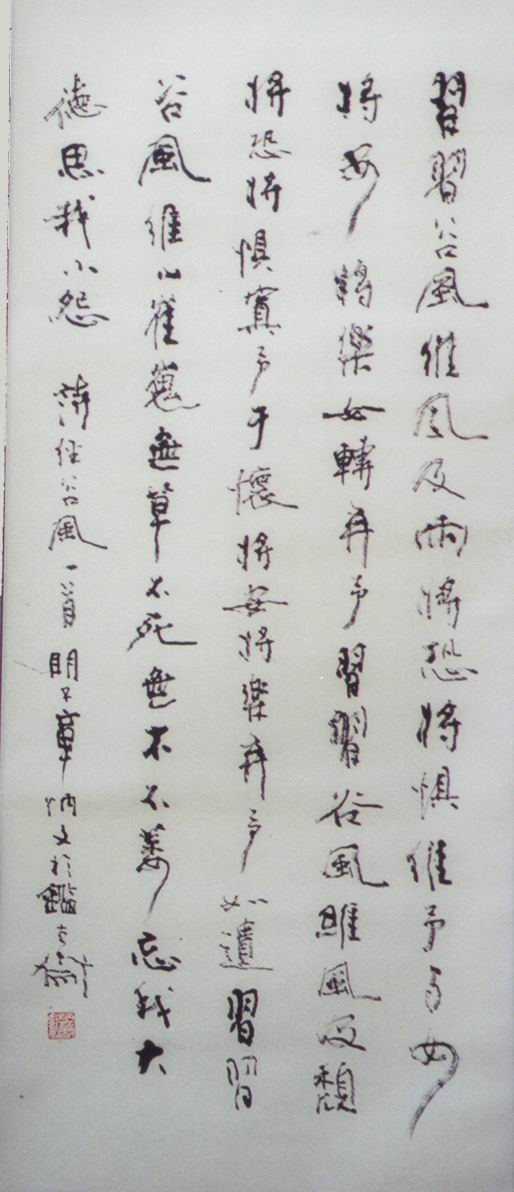 習習谷風維風及雨將恐將懼維予与女
將安將樂女轉弃予習習谷風維風及頹
將恐將懼寘予于懷將安將樂弃予如遺習習
谷風維山崔嵬無草不死無木不萎忘我大
德思我小怨 詩經谷風一首 章炳文於